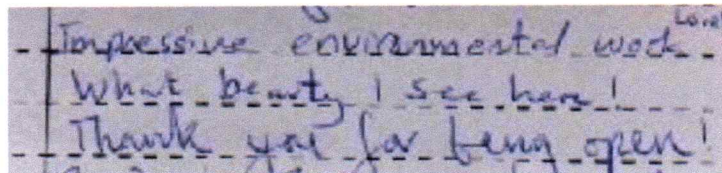 Impressive environmental work
What beauty I see here!
Thank you for being open!